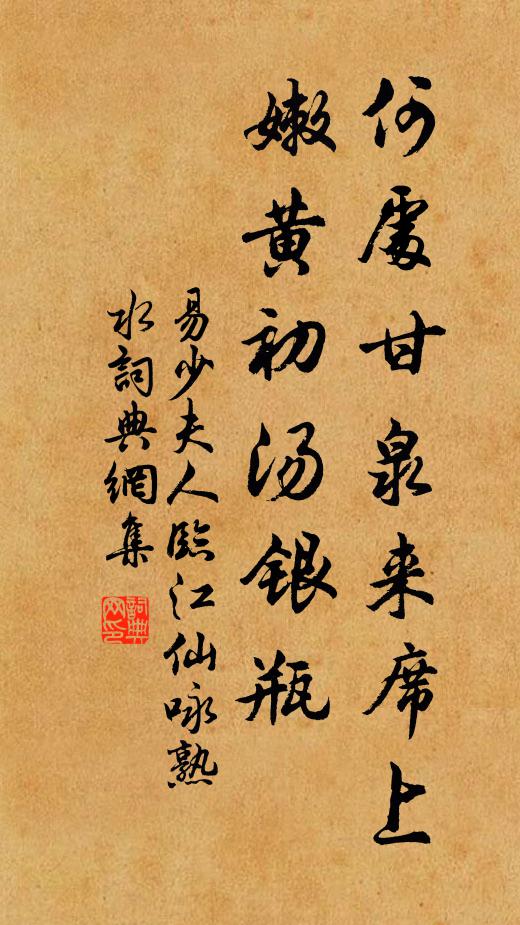 何處甘泉来席上
嫩黄初汤銀瓶
易少夫人臨江仙咏熟
水詞典網集
詞典
网印